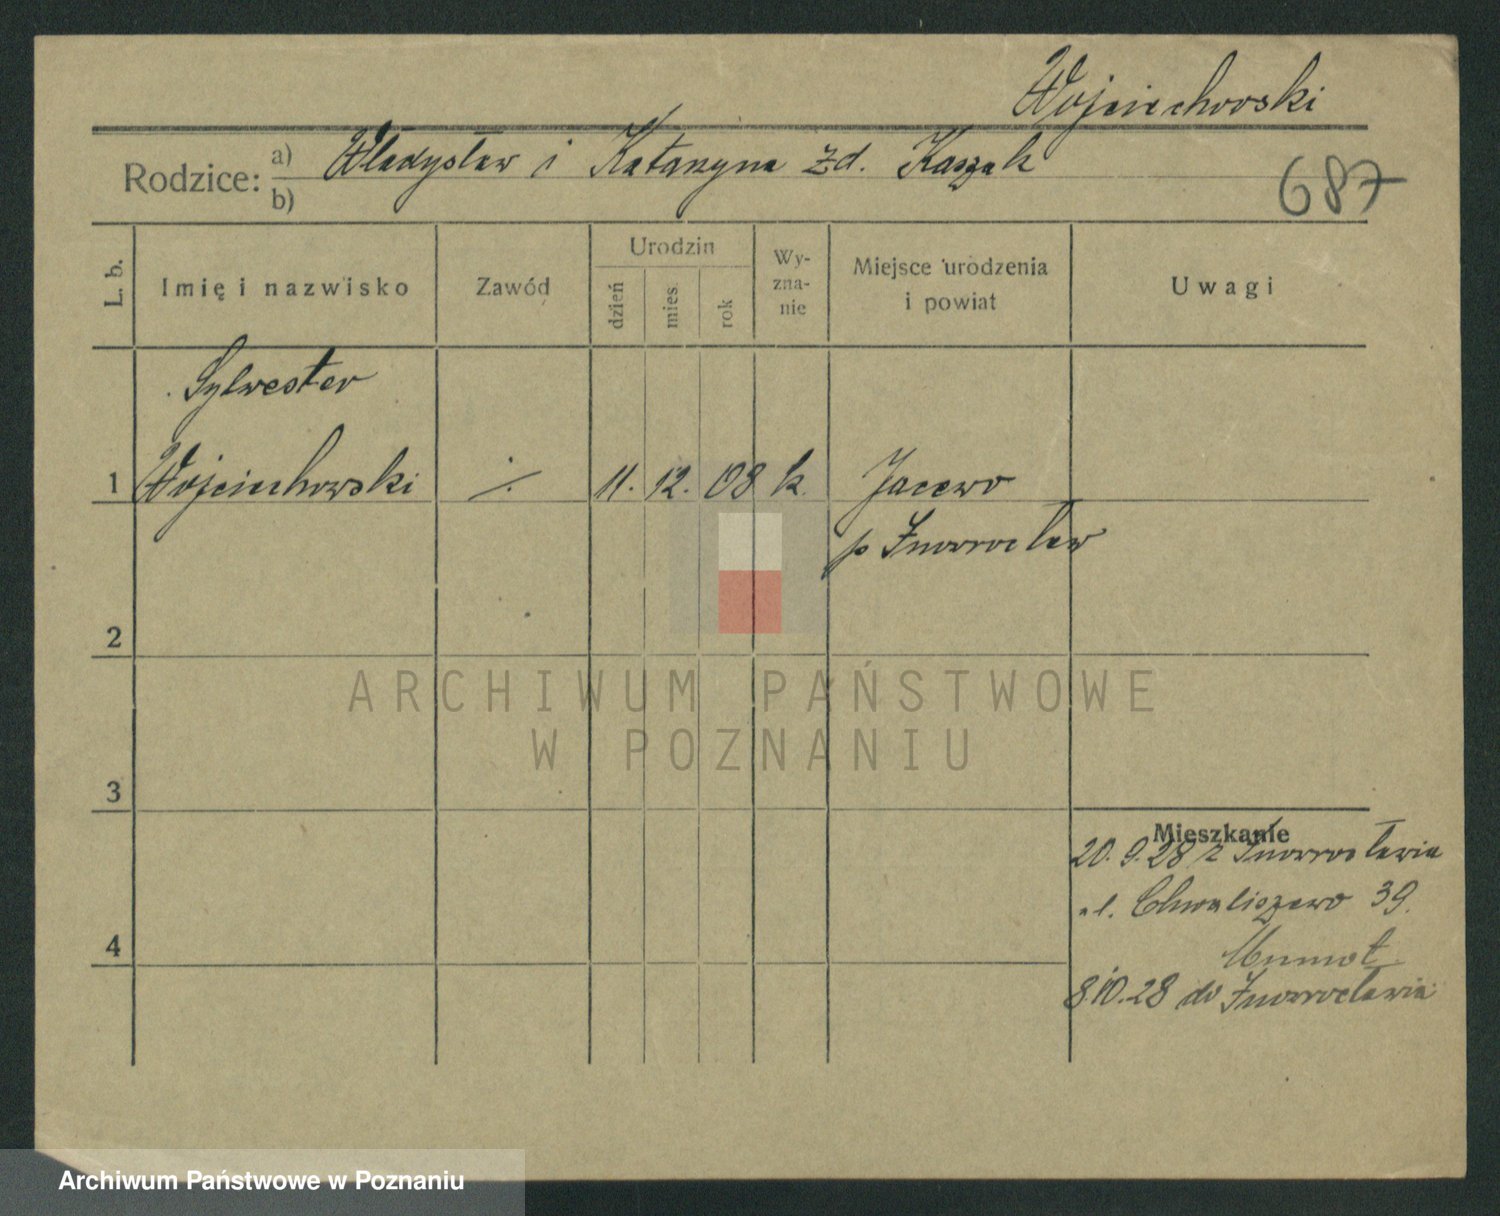 Wojciechowski
Rodzice: a) Władysław i Katarzyna zd. Kaszak
b)
687
L. b. Imię i nazwisko Zawód Urodzin dzień mies. rok Wy-zna-nie Miejsce urodzenia i powiat Uwagi
Sylwester
1 Wojciechowski ·/. 11. 12. 08 k. Jacewo
p Inowrocław
2
ARCHIWUM PAŃSTWOWE
W POZNANIU
3
Mieszkanie
20. 9. 28 z Inowrocławia
ul. Chwaliszewo 39.
4
8.10.28 do Inowrocławia
Archiwum Państwowe w Poznaniu